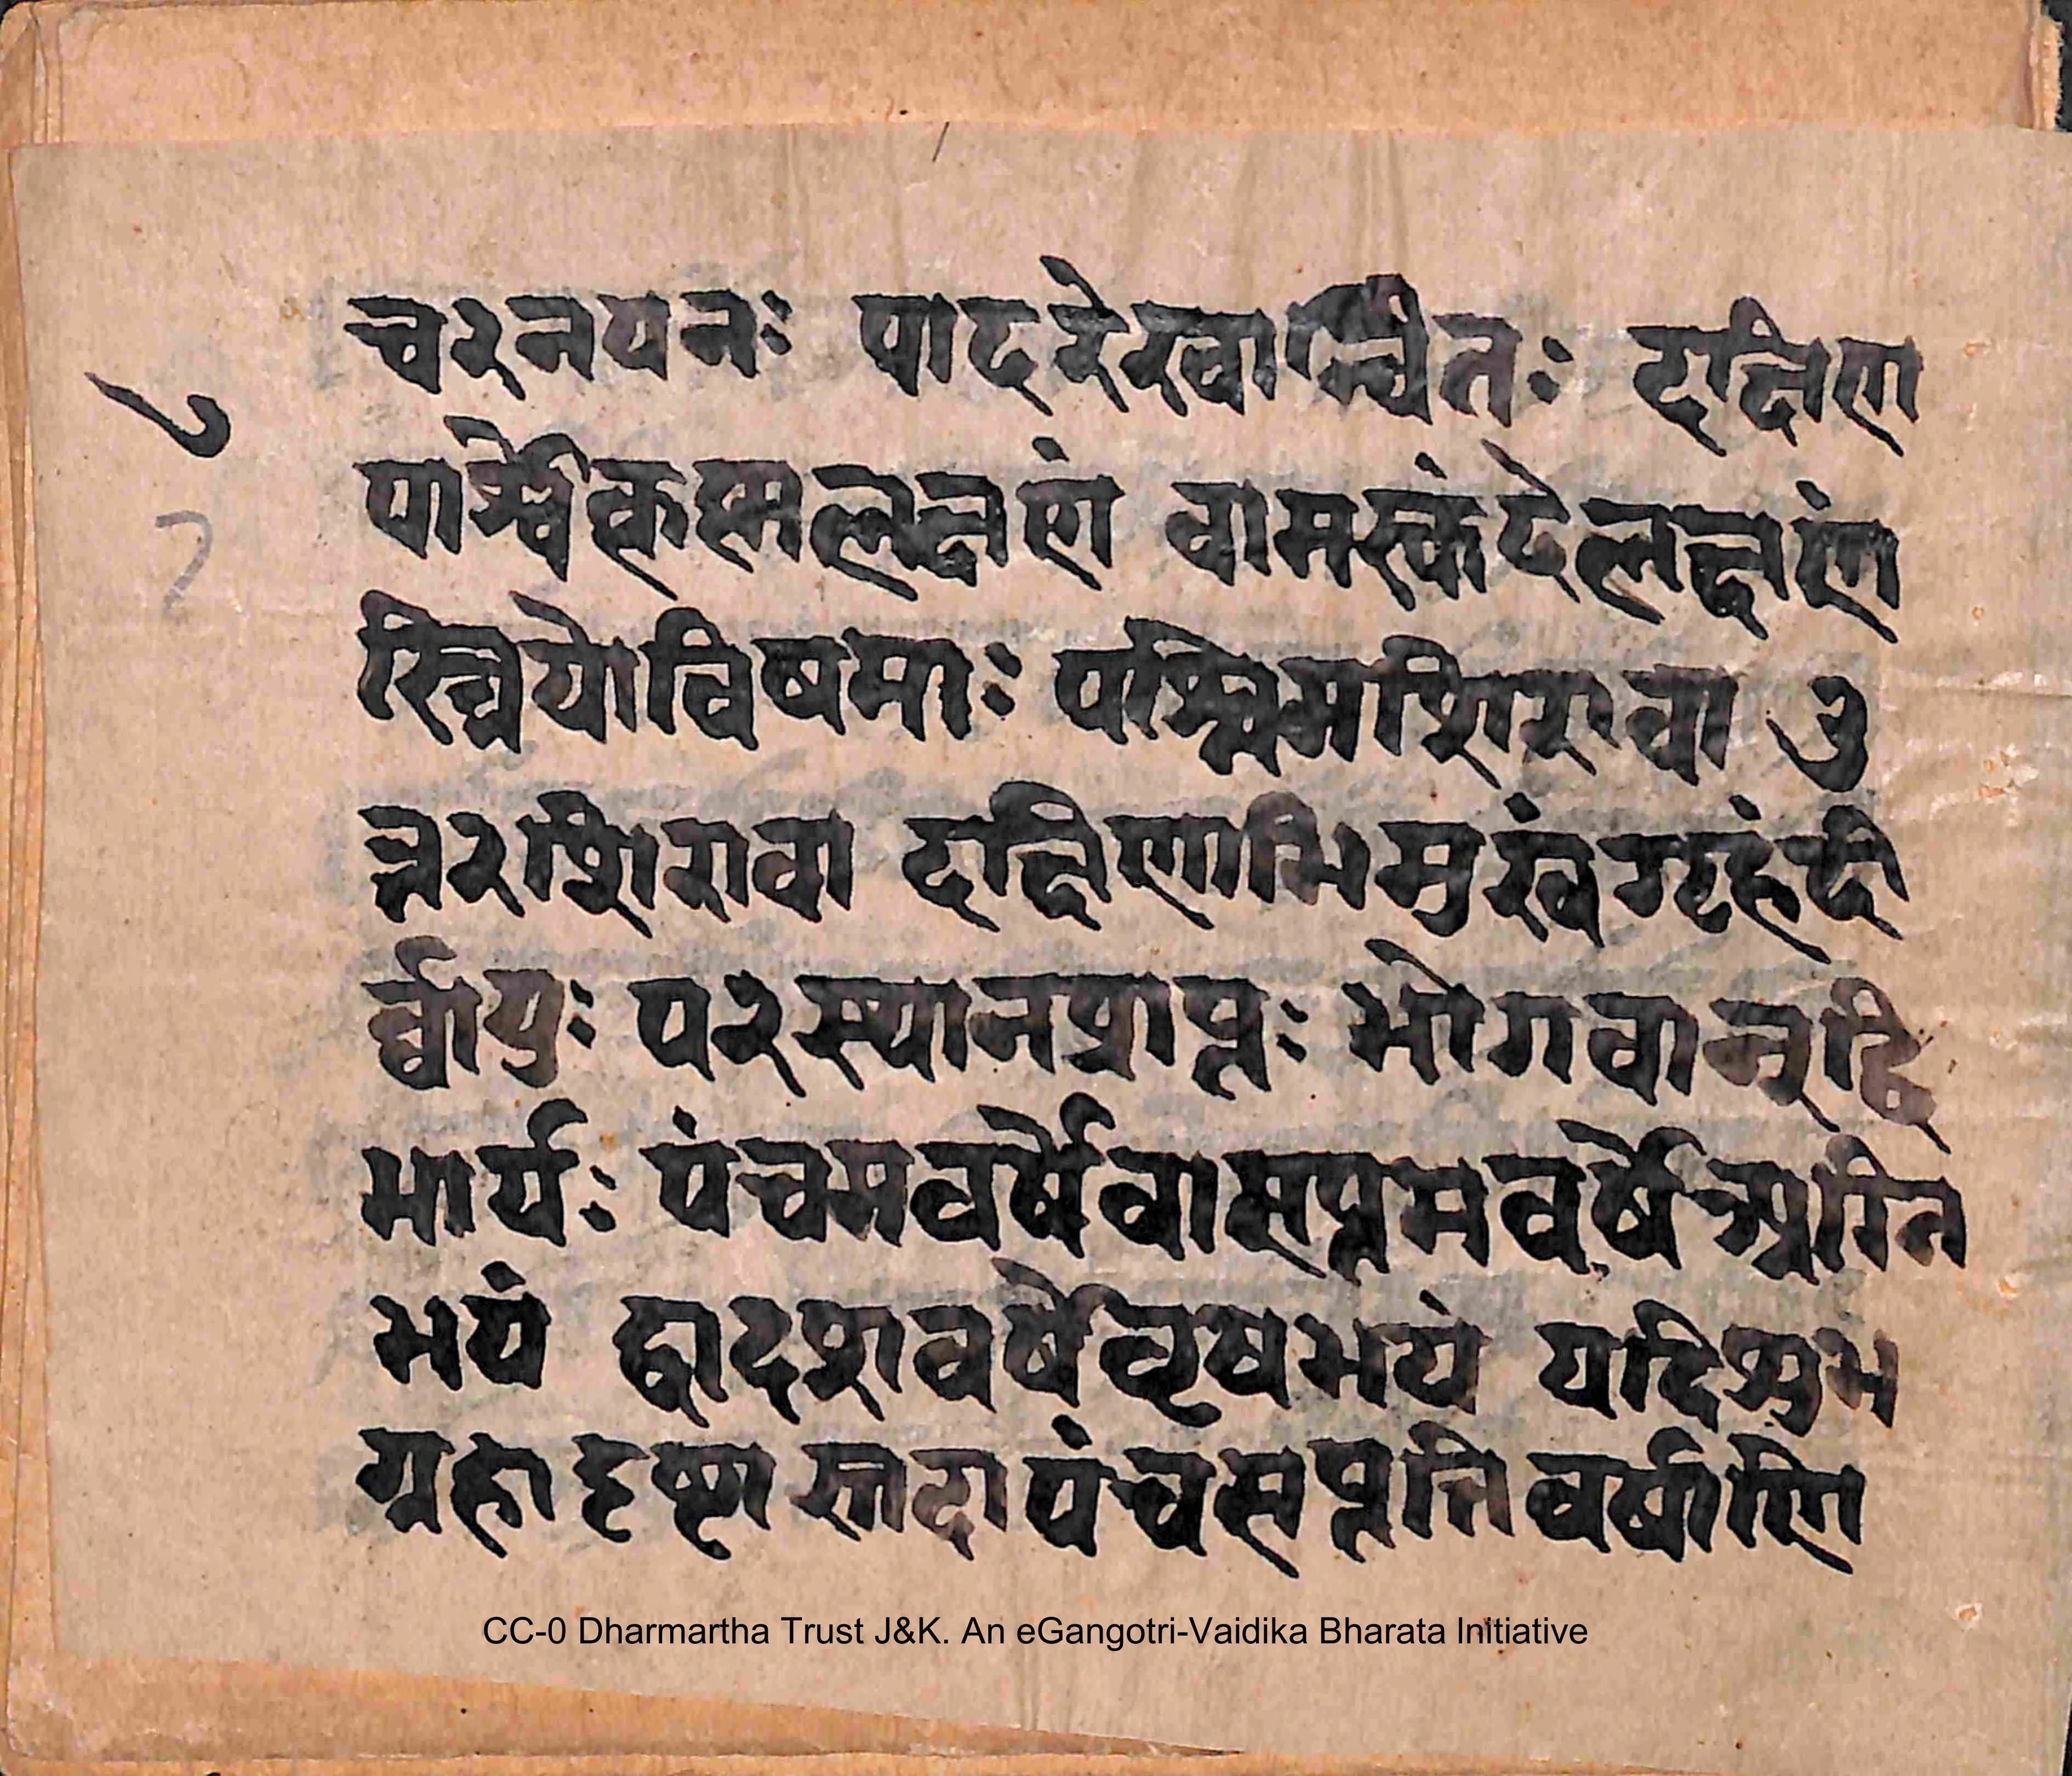 चरनयनः पादरेखान्वितः दक्षिण
७
पार्श्वेकक्ष्मलक्षणं वामस्कंदेलक्षणं
२
स्त्रियोविषमाः पश्चिमशिरावा उ
त्तरशिरावा दक्षिणाभिमुखंगृहंदी
र्घायुः परस्थानप्राप्तः भोगवान्द्वि
भार्यः पंचमवर्षेवासप्तमवर्षेअग्नि
भयं द्वादशवर्षेवृषभयं यदिशुभ
ग्रहादृष्टास्तदापंचसप्ततिवर्षाणि
CC-0 Dharmartha Trust J&K. An eGangotri-Vaidika Bharata Initiative